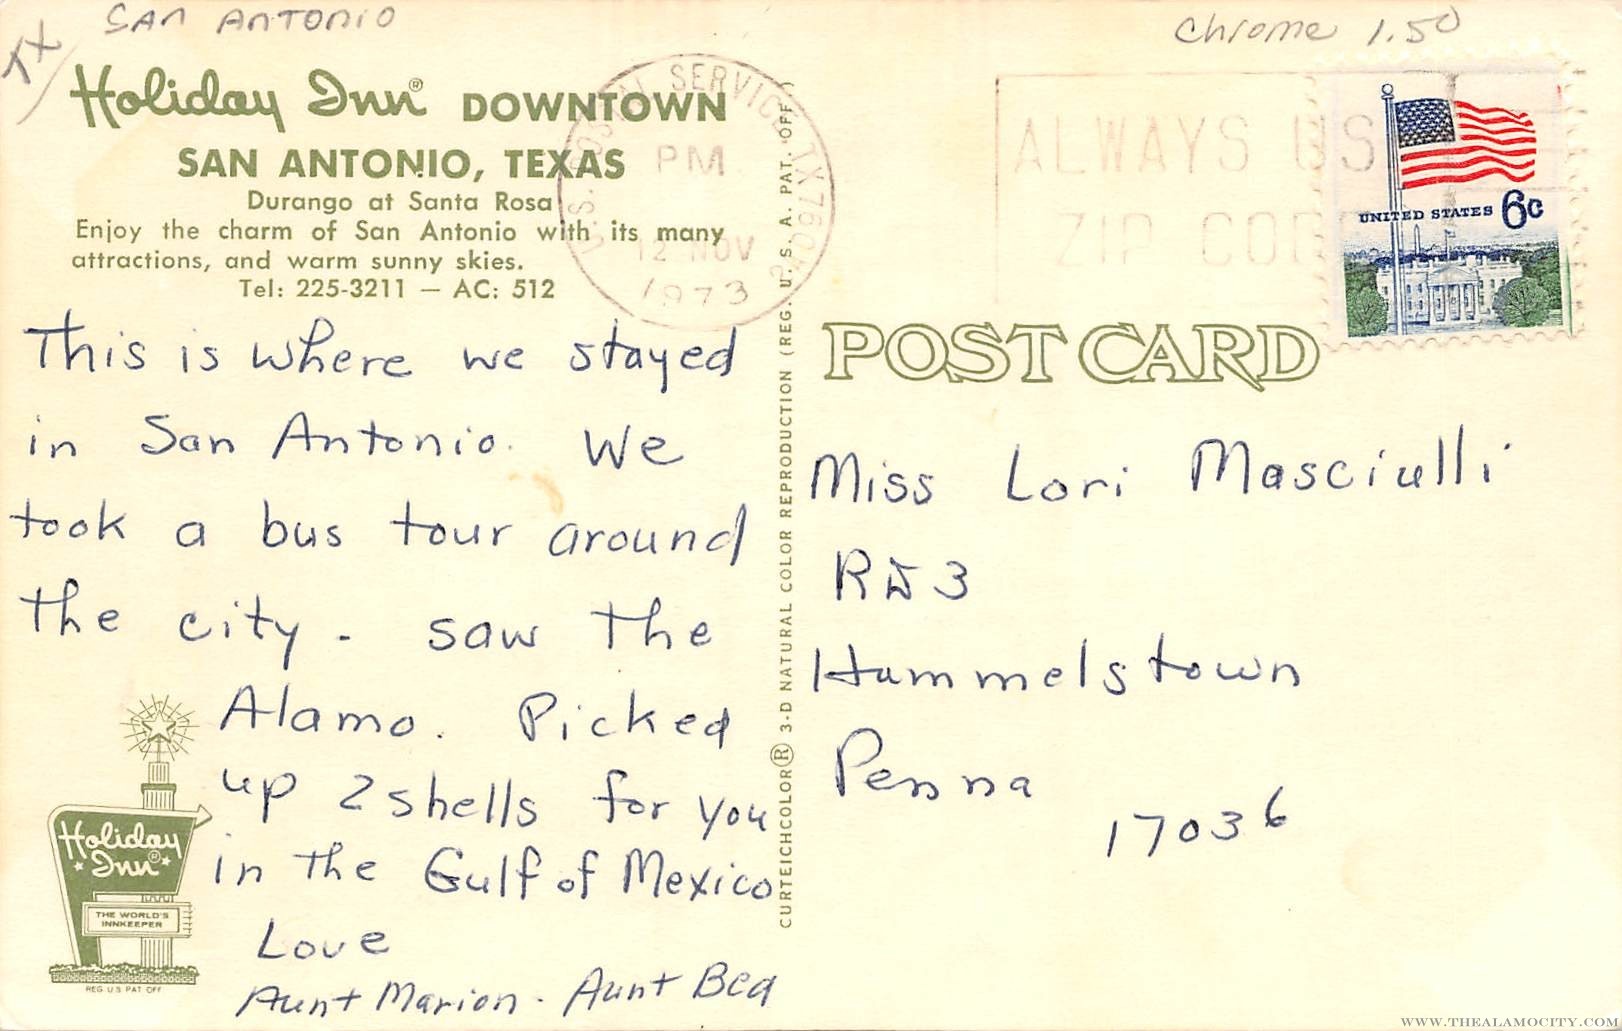 TX
SAN ANTONIO
Chrome 1.50
Holiday Inn® DOWNTOWN
SAN ANTONIO, TEXAS
Durango at Santa Rosa
Enjoy the charm of San Antonio with its many
attractions, and warm sunny skies.
Tel: 225-3211 — AC: 512
This is where we stayed
in San Antonio. We
took a bus tour around
the city - saw the
Alamo. Picked
up 2 shells for you
in the Gulf of Mexico
Love
Aunt Marion - Aunt Bea
Holiday
Inn®
THE WORLD'S
INNKEEPER
REG U S PAT OFF
CURTEICHCOLOR® 3-D NATURAL COLOR REPRODUCTION (REG. U. S. A. PAT. OFF.)
U.S. POSTAL SERVICE TX
PM
12 NOV
1973
ALWAYS US
ZIP COD
UNITED STATES 6c
POST CARD
Miss Lori Masciulli
RD 3
Hummelstown
Penna
17036
WWW.THEALAMOCITY.COM